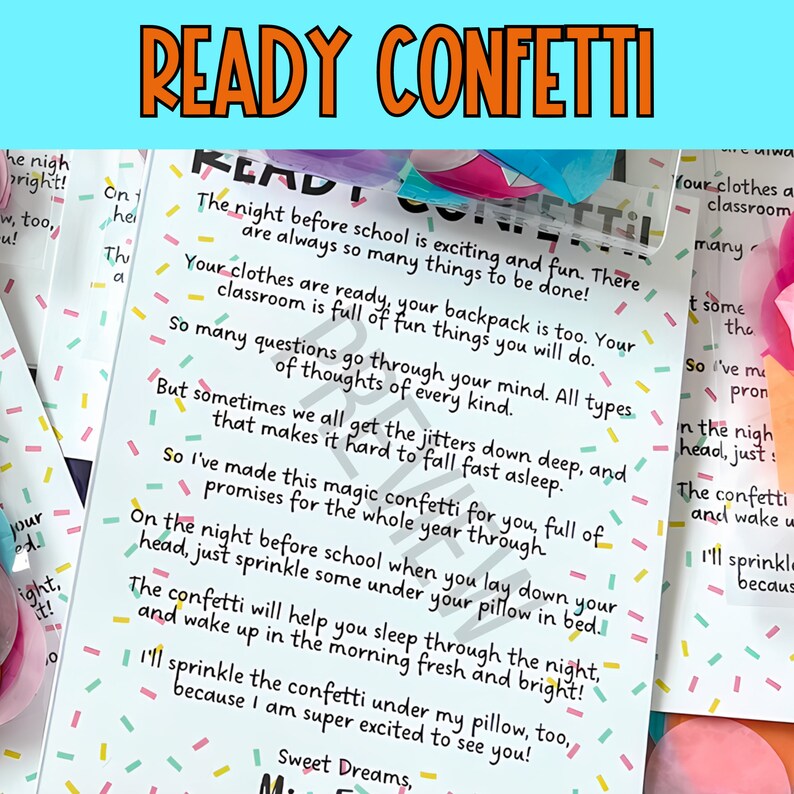 READY CONFETTI
READY CONFETTI!
The night before school is exciting and fun. There
are always so many things to be done!
Your clothes are ready, your backpack is too. Your
classroom is full of fun things you will do.
So many questions go through your mind. All types
of thoughts of every kind.
But sometimes we all get the jitters down deep, and
that makes it hard to fall fast asleep.
So I've made this magic confetti for you, full of
promises for the whole year through.
On the night before school when you lay down your
head, just sprinkle some under your pillow in bed.
The confetti will help you sleep through the night,
and wake up in the morning fresh and bright!
I'll sprinkle the confetti under my pillow, too,
because I am super excited to see you!
Sweet Dreams,
PREVIEW
he nigh
bright!
, too,
u!
On
hea
a
your
ed.
ight,
t!
are alwa
Your clothes a
classroom
many
t some
tha
So I've ma
prom
n the nigh
head, just s
The confetti
and wake u
I'll sprinkle
becaus